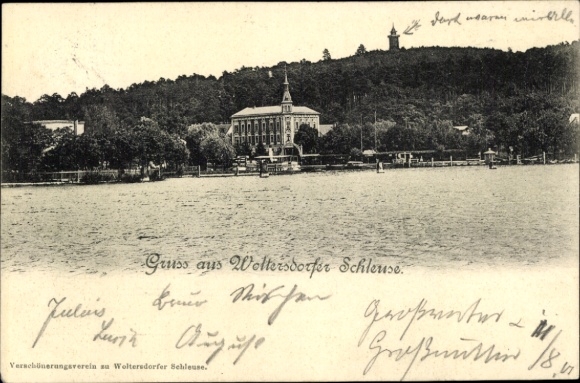 dort waren wir Alle
Gruss aus Woltersdorfer Schleuse.
Julius Bruno
August
Großvater
Großmutter
Verschönerungsverein zu Woltersdorfer Schleuse.